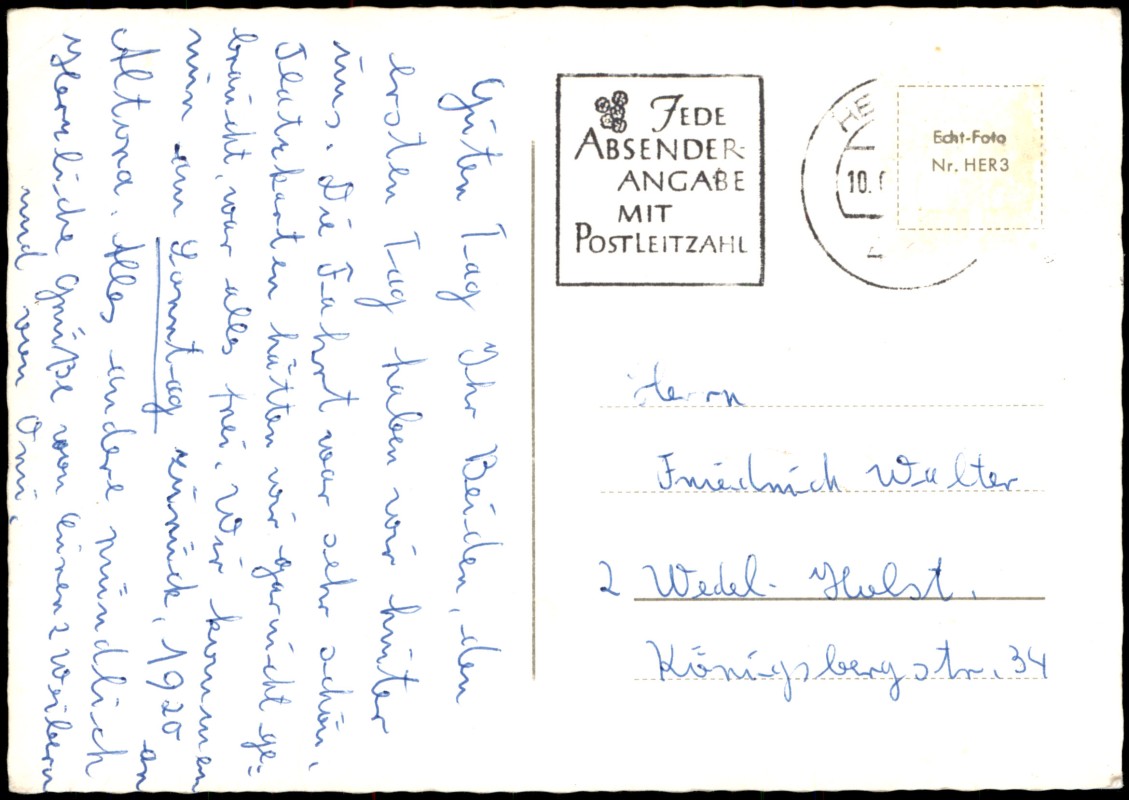 Guten Tag Ihr Beiden, den
ersten Tag haben wir hinter
uns. Die Fahrt war sehr schön,
Platzkarten hätten wir garnicht ge-
braucht, war alles frei. Wir kommen
nun am Sonntag zurück, 1920 an
Altona. Alles andere mündlich
Herzliche Grüße von Euren 2 Weibern
und von Omi.
JEDE
ABSENDER-
ANGABE
MIT
POSTLEITZAHL
HE
10.
2
Echt-Foto
Nr. HER3
Herrn
Friedrich Walter
2 Wedel- Holst.
Königsbergstr. 34